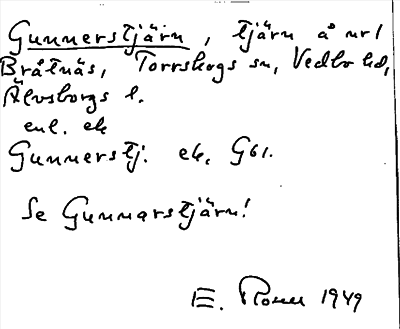 Gunnerstjärn, tjärn å nr 1
Bråtnäs, Torrskogs sn, Vedbo hd,
Älvsborgs l.
enl. ek
Gunnerstj. ek, G61.
Se Gunnarstjärn!
E. 1949